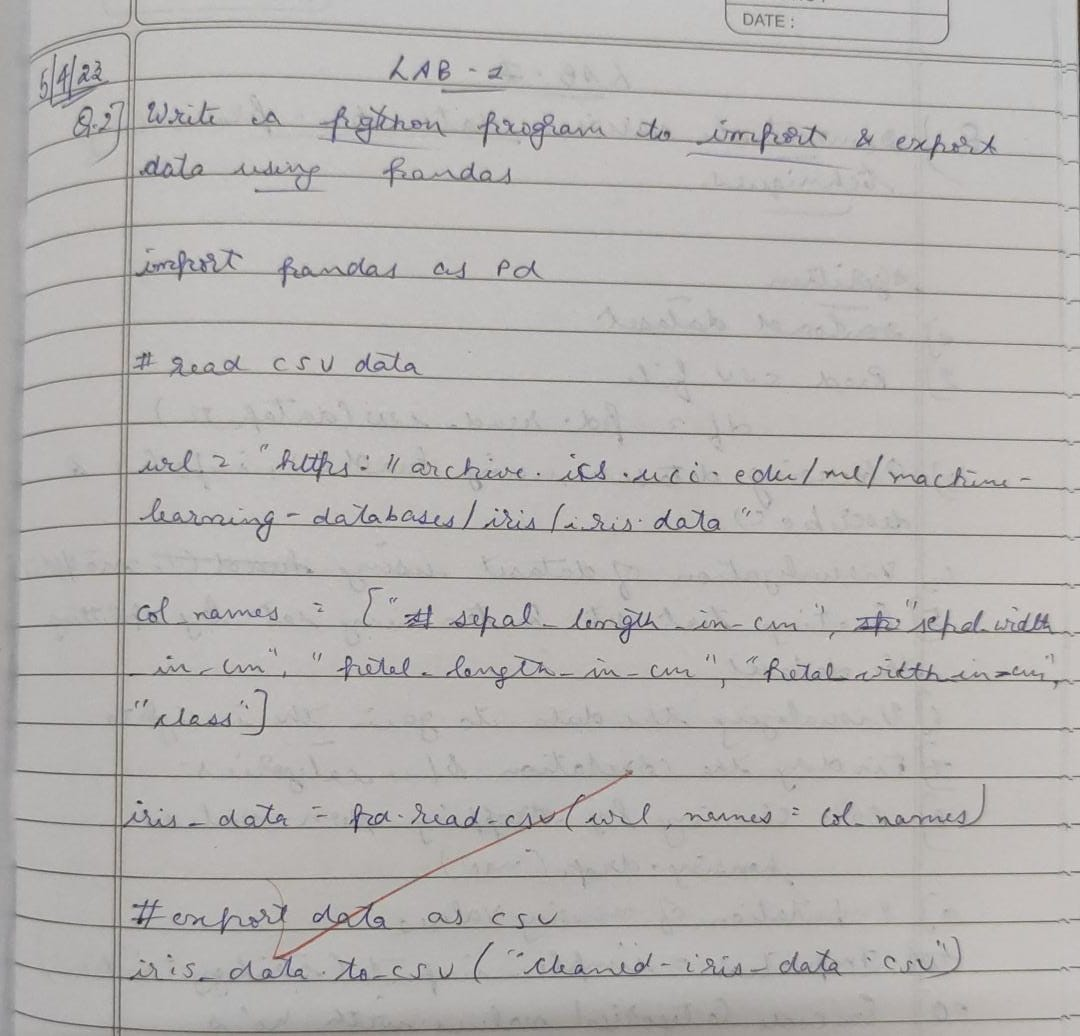 DATE :
5/4/23
LAB - 1
Q.2] Write a python program to import & export
data using pandas
import pandas as pd
# read csv data
url = "https://archive.ics.uci.edu/ml/machine-
learning-databases/iris/iris.data"
col names = ["sepal_length_in_cm", "sepal_width
_in_cm", "petal_length_in_cm", "petal_width_in_cm",
"class"]
iris_data = pd.read_csv(url, names = col_names)
# export data as csv
iris_data.to_csv("cleaned-iris_data.csv")